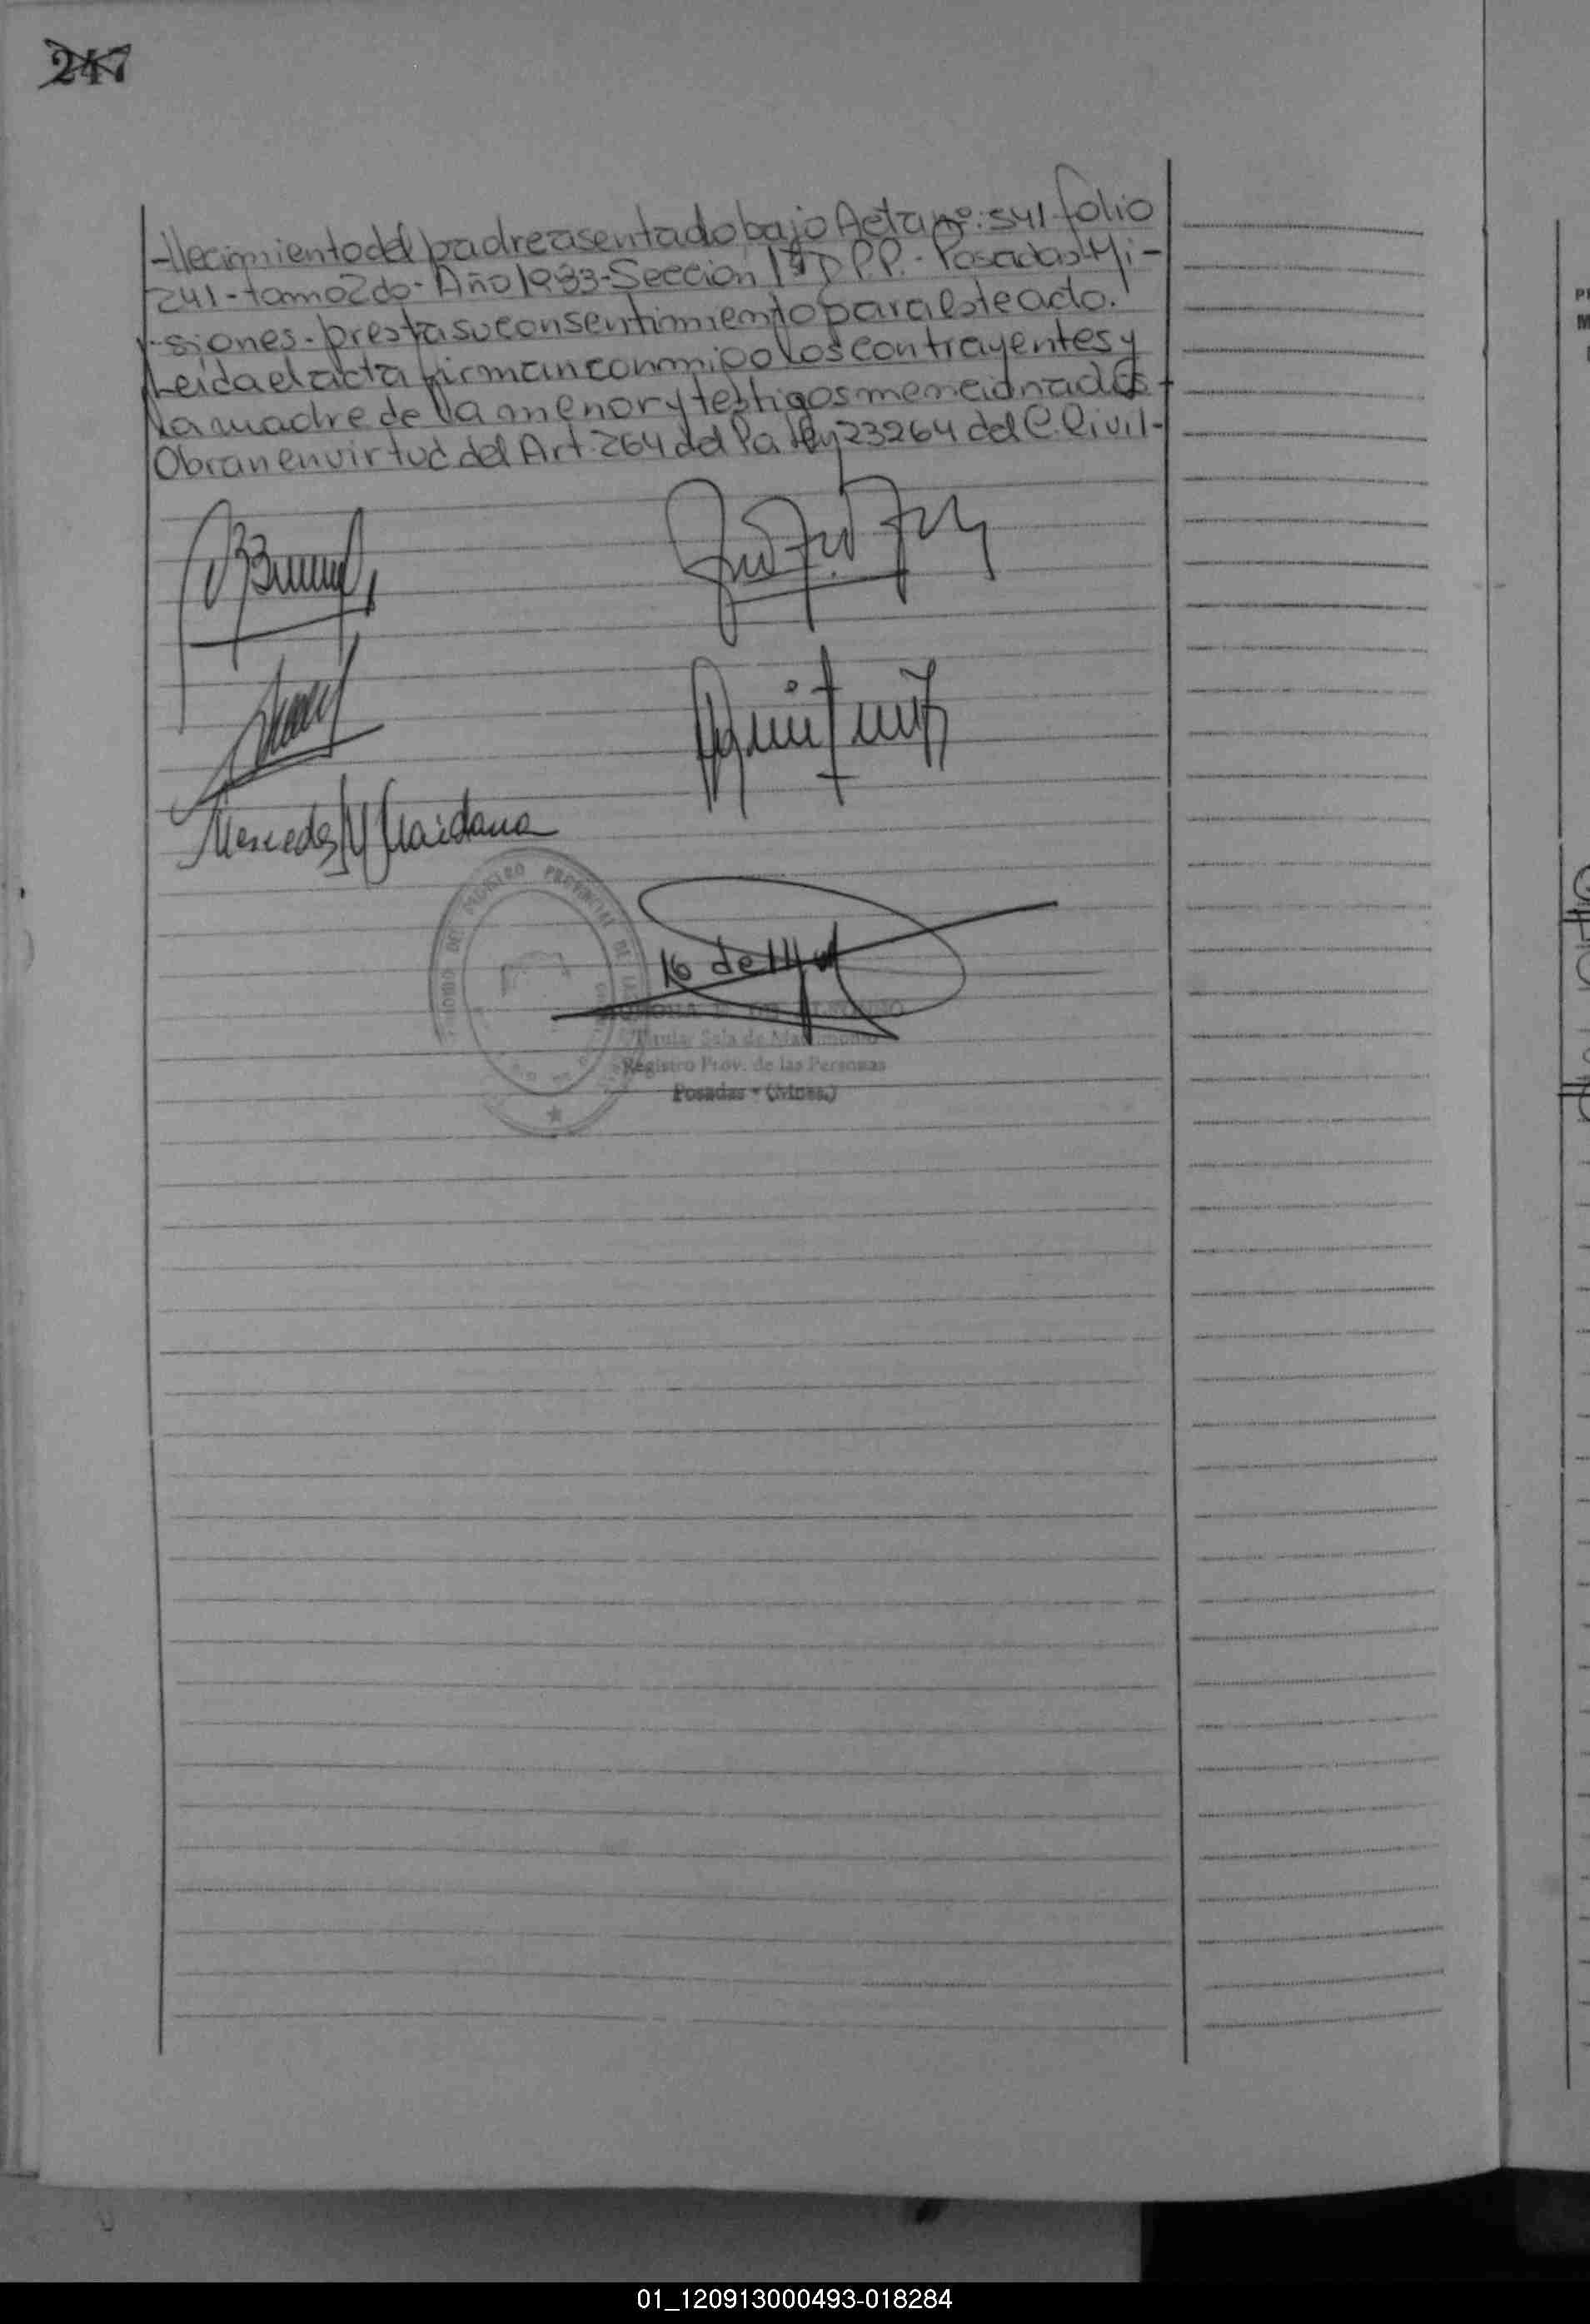 247
-llecimiento del padre asentado bajo Acta nº: 541 folio
241-tomo 2do-Año 1983-Sección 1ª D P.P.-Posadas-Mi-
-siones-presta su consentimiento para este acto.
Leída el acta firman conmigo los contrayentes y
la madre de la menor y testigos mencionados-
Obran en virtud del Art. 264 de la ley 23264 del C. Civil-
Mercedes Maidana
REGISTRO PROVINCIAL DE LAS
16 de
Titular Sala de Matrimonio
Registro Prov. de las Personas
Posadas - (Mnes.)
01_120913000493-018284